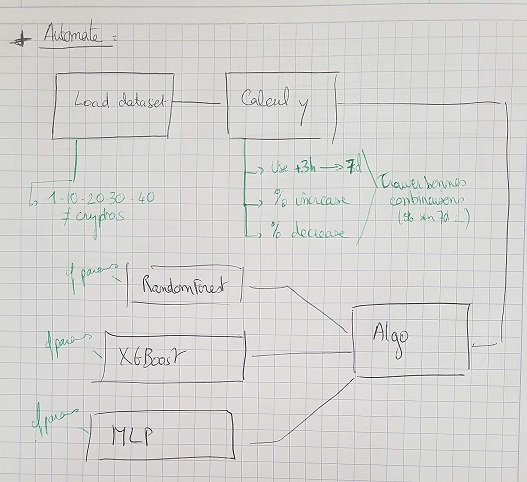 + Automate :
Load dataset
Calcul y
1-10-20 30-40
≠ cryptos
Use +3h → 7d
% increase
% decrease
Trouver bonnes
combinaisons
(% en 7d ...)
≠ params
RandomForest
≠ params
XGBoost
≠ params
MLP
Algo